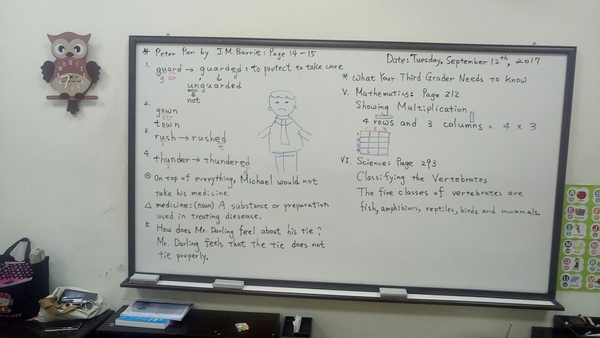 * Peter Pan by J.M. Barrie: Page 14-15
1. guard → guarded: to protect to take care
unguarded
not
2. gown
town
3. rush → rushed
4. thunder → thundered
On top of everything, Michael would not
take his medicine.
△ medicine: (noun) A substance or preparation
used in treating diesease.
5. How does Mr. Darling feel about his tie?
Mr. Darling feels that the tie does not
tie properly.
Date: Tuesday, September 12th, 2017
* What Your Third Grader Needs to Know
V. Mathematics: Page 212
Showing Multiplication
4 rows and 3 columns = 4 x 3
VI. Science: Page 293
Classifying the Vertebrates
The five classes of vertebrates are
fish, amphibians, reptiles, birds and mammals.